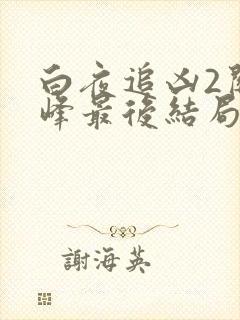 白夜追凶2
峰最後結局
謝海英